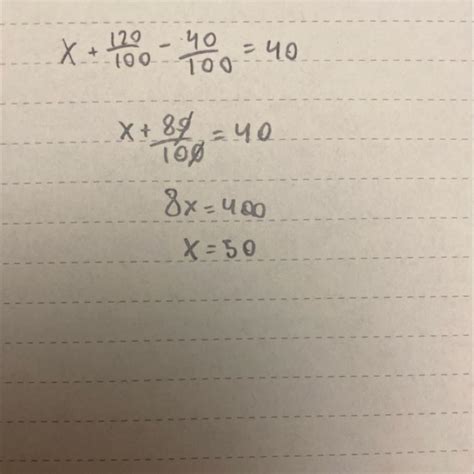 x + 120/100 - 40/100 = 40
x + 80/100 = 40
8x = 400
x = 50